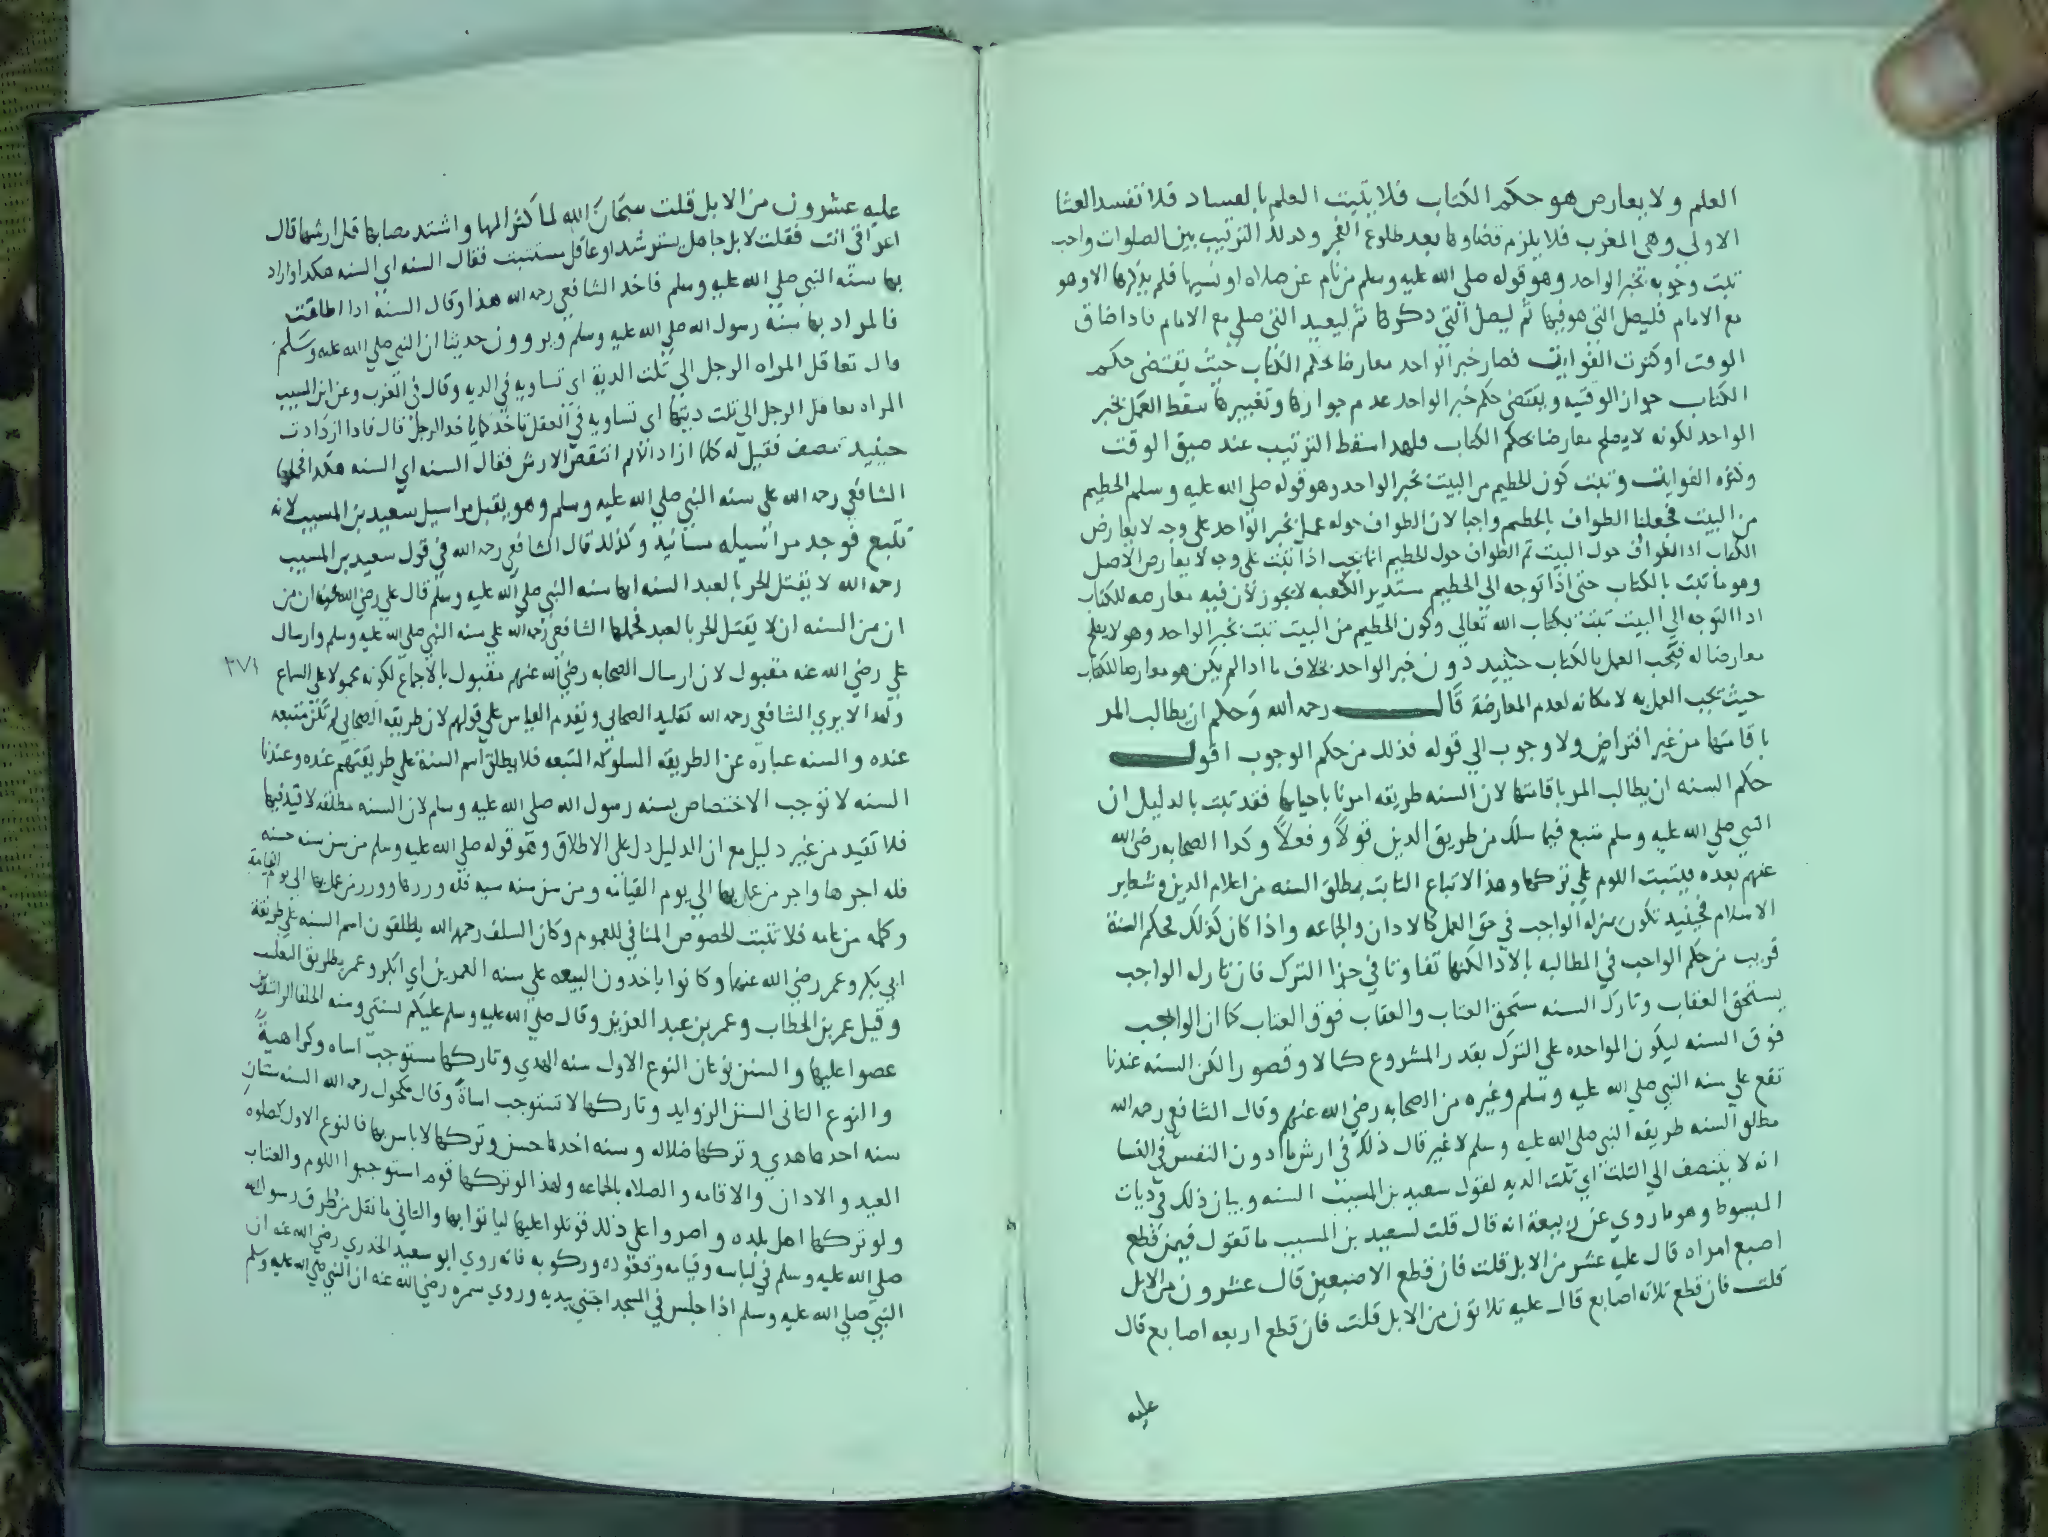 العلم ولا يعارض هو حكم الكتاب فلا تثبت العلم بالفساد فلا تفسد العشا
الاولي وهي المغرب فلا يلزم قضاوها بعد طلوع الفجر وكذلك الترتيب بين الصلوات واجب
ثبت وجوبه بخبر الواحد وهو قوله صلي الله عليه وسلم من نام عن صلاه او نسيها فلم يذكرها الا وهو
مع الامام فليصل التي هو فيها ثم ليصل التي ذكرها ثم ليعيد التي صلي مع الامام فاذا ضاق
الوقت او كثرت الفوايت فصار خبر الواحد معارضا لحكم الكتاب حيث يقتضي حكم
الكتاب جواز الوقتيه ويقتضي حكم خبر الواحد عدم جوازها وتغييرها سقط العمل بخبر
الواحد لكونه لا يصلح معارضا لحكم الكتاب فلهذا سقط الترتيب عند ضيق الوقت
وكثره الفوايت وثبت كون الحطيم من البيت بخبر الواحد وهو قوله صلي الله عليه وسلم الحطيم
من البيت فجعلنا الطواف بالحطيم واجبا لان الطواف حوله عملا بخبر الواحد علي وجه لا يعارض
الكتاب اذ الطواف حول البيت ثم الطواف حول الحطيم انما يجب اذا ثبت علي وجه لا يعارض الاصل
وهو ما ثبت بالكتاب حتي اذا توجه الي الحطيم مستدبر الكعبه لا يجوز لان فيه معارضه للكتاب
اذ التوجه الي البيت ثبت بكتاب الله تعالي وكون الحطيم من البيت ثبت بخبر الواحد وهو لا يصلح
معارضا له فيجب العمل بالكتاب حينيذ دون خبر الواحد بخلاف ما اذا لم يكن هو معارضا للكتاب
حيث يجب العمل به لامكانه لعدم المعارضة قال رحمه الله وحكم ان يطالب المر
باقامتها من غير افتراض ولا وجوب الي قوله فذلك من حكم الوجوب اقول
حكم السنه ان يطالب المر باقامتها لان السنه طريقه امرنا باحياها فقد ثبت بالدليل ان
النبي صلي الله عليه وسلم متبع فيما سلك من طريق الدين قولاً وفعلاً وكذا الصحابه رضي الله
عنهم بعده فيثبت اللوم علي تركها وهذا الاتباع الثابت بمطلق السنه من اعلام الدين وشعاير
الاسلام فحينيذ تكون بمنزله الواجب في حق العمل كالاذان والجماعه واذا كان كذلك فحكم السنة
قريب من حكم الواجب في المطالبه بالادا لكنها تفاوتا في جزا الترك فان تارك الواجب
يستحق العقاب وتارك السنه يستحق العتاب والعقاب فوق العتاب كما ان الواجب
فوق السنه ليكون المواخذه علي الترك بقدر المشروع كمالا وقصورا لكن السنه عندنا
تقع علي سنه النبي صلي الله عليه وسلم وغيره من الصحابه رضي الله عنهم وقال الشافعي رحمه الله
مطلق السنه طريقه النبي صلي الله عليه وسلم لا غير قال ذلك في ارش ما دون النفس في النسا
انه لا يتنصف الي الثلث اي ثلث الديه لقول سعيد بن المسيب السنه وبيان ذلك في ديات
المبسوط وهو ما روي عن ربيعة انه قال قلت لسعيد بن المسيب ما تقول فيمن قطع
اصبع امراه قال عليه عشر من الابل قلت فان قطع الاصبعين قال عشرون من الابل
قلت فان قطع ثلاثه اصابع قال عليه ثلاثون من الابل قلت فان قطع اربعه اصابع قال
عليه
عليه عشرون من الابل قلت سبحان الله لما كثر المها واشتد مصابها قل ارشها قال
اعراقي انت فقلت لا بل جاهل مسترشد او عاقل مستثبت فقال السنه اي السنه هكذا واراد
بها سنه النبي صلي الله عليه وسلم فاخذ الشافعي رحمه الله هذا وقال السنة اذا اطلقت
فالمراد بها سنة رسول الله صلي الله عليه وسلم ويروون حديثا ان النبي صلي الله عليه وسلم
قال تعاقل المراه الرجل الي ثلث الدية اي تساويه في الديه وقال في المغرب وعن ابن المسيب
المراه تعاقل الرجل الي ثلث ديتها اي تساويه في العقل تاخذ كما ياخذ الرجل قال فاذا ازدادت
حينيذ تنصف فقيل له كلما ازاد الالم انتقص الارش فقال السنه اي السنه هكذا فحملها
الشافعي رحمه الله علي سنه النبي صلي الله عليه وسلم وهو يقبل مراسيل سعيد بن المسيب لانه
تتبع فوجد مراسيله مسانيد وكذلك قال الشافعي رحمه الله في قول سعيد بن المسيب
رحمه الله لا يقتل الحر بالعبد السنه انها سنه النبي صلي الله عليه وسلم قال علي رضي الله عنه ان من
ان من السنه ان لا يقتل الحر بالعبد فحملها الشافعي رحمه الله علي سنه النبي صلي الله عليه وسلم وارسال
علي رضي الله عنه مقبول لان ارسال الصحابه رضي الله عنهم مقبول بالاجماع لكونه محمولا علي السماع
ولهذا لا يري الشافعي رحمه الله تقليد الصحابي ويقدم القياس علي قولهم لان طريقه الصحابي لم تكن متبعه
عنده والسنه عباره عن الطريقه المسلوكه المتبعه فلا يطلق اسم السنة علي طريقتهم عنده وعندنا
السنه لا توجب الاختصاص بسنه رسول الله صلي الله عليه وسلم لان السنه مطلقه لا قيد فيها
فلا تقيد من غير دليل مع ان الدليل دل علي الاطلاق وهو قوله صلي الله عليه وسلم من سن سنه حسنه
فله اجرها واجر من عمل بها الي يوم القيامه ومن سن سنه سيه فله وزرها ووزر من عمل بها الي يوم القيامة
وكلمه من عامه فلا تثبت الخصوص المنافي للعموم وكان السلف رحمهم الله يطلقون اسم السنه علي طريقة
ابي بكر وعمر رضي الله عنهما وكانوا ياخذون البيعه علي سنه العمرين اي ابكر وعمر بطريق التغليب
وقيل عمر بن الخطاب وعمر بن عبد العزيز وقال صلي الله عليه وسلم عليكم بسنتي وسنه الخلفا الراشدين
عضوا عليها والسنن نوعان النوع الاول سنه الهدي وتاركها يستوجب اساه وكراهيةً
والنوع الثاني السنن الزوايد وتاركها لا تستوجب اساة وقال مكحول رحمه الله السنه سنتان
سنه اخذها هدي وتركها ضلاله وسنه اخذها حسن وتركها لا باس بها فالنوع الاول كصلوه
العيد والاذان والاقامه والصلاه بالجماعه ولهذا لو تركها قوم استوجبوا اللوم والعتاب
ولو تركها اهل بلده واصروا علي ذلك قوتلوا عليها لياتوا بها والثاني ما نقل من طرق رسول الله
صلي الله عليه وسلم في لباسه وقيامه وقعوده وركوبه فانه روي ابو سعيد الخدري رضي الله عنه ان
النبي صلي الله عليه وسلم اذا جلس في المسجد احتبي بيديه وروي سمره رضي الله عنه ان النبي صلي الله عليه وسلم